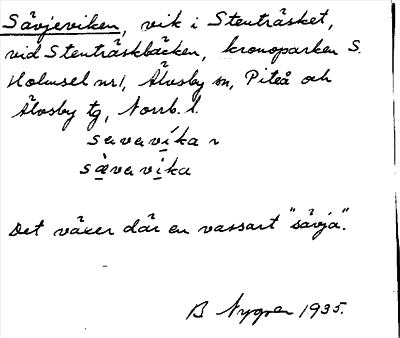 Sävjeviken, vik i Stenträsket,
vid Stenträskbäcken, kronoparken S.
Holmsel nr1, Älvsby sn, Piteå och
Älvsby tg, Norrb. l.
savavika ~
sàvavika
Det växer där en vassart "sävja".
B Nygren 1935.